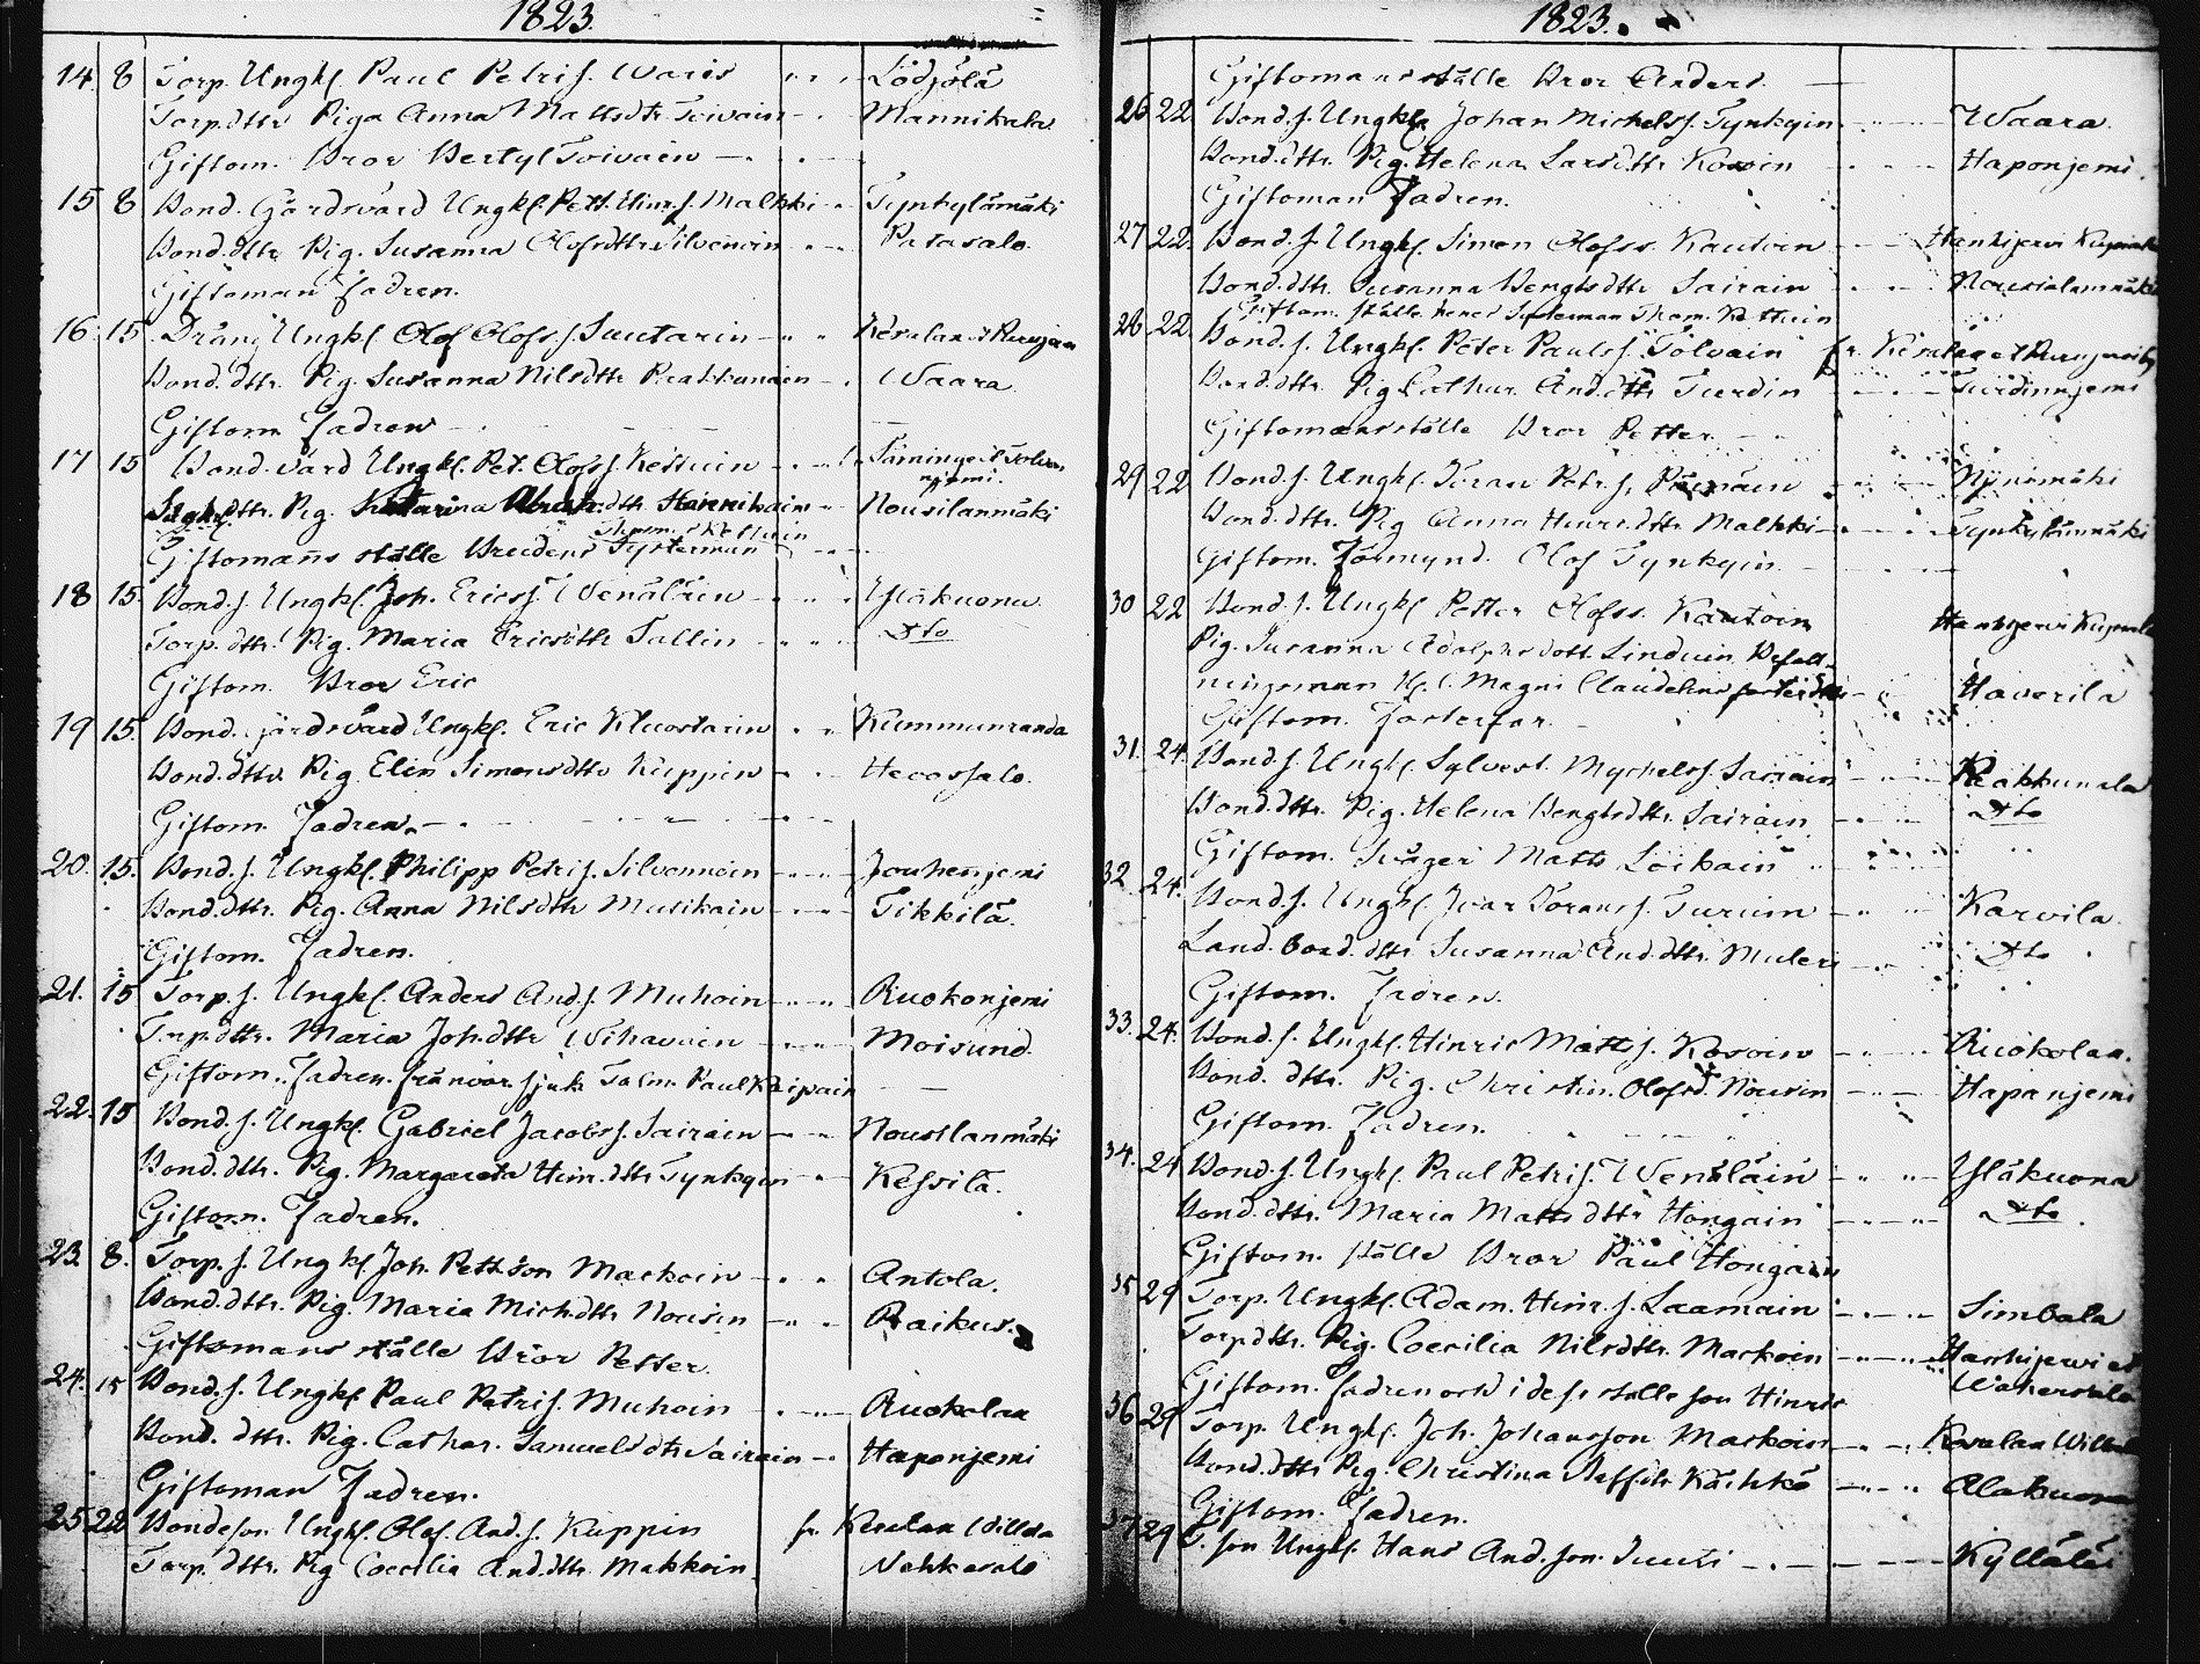 1823.
14. 8 Torp. Ungk. Paul Petris. Waris Lödjölä
Torp.dttr Piga Anna Mattsdtr Toivain Mannikala
Giftom. Bror Bertyl Toivain
15 8 Bond. Gårdvärd Ungk. Pett. Hinr.s. Malkki Tynkylämäki
Bond.dttr Pig. Susanna Olofsdttr Silvenoin Patasalo
Giftoman Fadren.
16 15 Dräng Ungk. Olof Olofs.s. Suutarin
Bond.dttr. Pig. Susanna Nilsdttr Waara
Giftom Fadren
17 15 Bond. värd Ungk. Pet. Olofs.s. Kettuin
dttr. Pig. Katarina Abrah.dttr. Hannikain Nousilanmäki
Thom. Kettuin
Giftomans ställe Brudens Systerman
18 15. Bond.s. Ungk. Joh. Ericss. Wenäläin Yläkuona
Torp.dttr. Pig. Maria Ericsdttr Tallin Dto
Giftom. Bror Eric
19 15. Bond. gårdvärd Ungk. Eric Kluostarin Kummunranda
Bond.dttr. Pig. Elin Simonsdttr Kuppin Hevossalo.
Giftom. Fadren.
20. 15. Bond.s. Ungk. Philipp Petris. Silvennoin Jouhenjemi
Bond.dttr. Pig. Anna Nilsdttr Musikain Tikkilä.
Giftom. Fadren.
21. 15 Torp.s. Ungk. Anders And.s. Muhoin Ruokonjemi
Torp.dttr. Maria Joh.dttr Wihavain Moisund.
Giftom. Fadren frånvar. sjuk Talm. Paul
22. 15 Bond.s. Ungk. Gabriel Jacobss. Sairain Nousilanmäki
Bond.dttr. Pig. Margareta Hinr.dttr Tynkyin Kessilä.
Giftom. Fadren.
23 8. Torp.s. Ungk. Joh. Pettson Mackoin Antola.
Bond.dttr. Pig. Maria Mich.dttr Nousin Raikus.
Giftomans ställe Bror Petter.
24. 15 Bond.s. Ungk. Paul Petris. Muhoin Ruokolax
Bond. dttr. Pig. Cathar. Samuelsdtr Sairain Haponjemi
Giftoman Fadren.
25 22 Bondeson Ungk. Olof. And.s. Kuppin fr. Kesälax Villala
Torp.dttr. Pig Coecilia And.dttr. Makkoin Nehkasalo
1823.
Giftomans ställe Bror Anders.
26 22 Bond.s. Ungk. Johan Michelss. Tynkyin Waara.
Bond.dttr. Pig. Helena Larsdttr Kosoin Haponjemi.
Giftoman Fadren.
27 22. Bond.s. Ungk. Simon Olofss. Kautoin
Bond.dttr. Susanna Bengtsdttr Sairain Nousialanmäki
Giftom. ställe henes Systerman Thom. Kettuin
28 22. Bond.s. Ungk. Peter Paulss. Tolvain
Bond.dttr. Pig Cathar. And.dttr Turdin Turdinnjemi
Giftomansställe Bror Petter.
29 22 Bond.s. Ungk. Göran Petr.s. Nynämäki
Bond.dttr. Pig Anna Hinrs.dttr Malkki Tynkylänmäki
Giftom. Förmynd. Olof Tynkyin.
30 22 Bond.s. Ungk. Petter Olofss. Kautoin
Pig. Susanna Adolphs dott. Linduin Befall-
ningsman H. C. Magni Claudelins Haverila
Giftom. Fosterfar.
31. 24. Bond.s. Ungk. Sylvest. Mychelss. Sairain Paakkunala
Bond.dttr. Pig. Helena Bengtsdttr. Sairain Dto
Giftom. Svåger Matts Loikain
32. 24. Bond.s. Ungk. Ivar Göranss. Turuin Karvila.
Land. bond.dttr Susanna And.dttr. Muleri Dto
Giftom. Fadren.
33. 24. Bond.s. Ungk. Hinric Matts s. Kosoin Ruokolax.
Bond. dttr. Pig. Christin. Olofsd. Nousin Hapanjemi
Giftom. Fadren.
34. 24 Bond.s. Ungk. Paul Petris. Wenäläin Yläkuona
Bond.dttr. Maria Matts dttr Hongain Dto.
Giftom. ställe Bror Paul Hongain
35 29 Torp. Ungk. Adam. Hinr.s. Laamain Simbala
Torp.dttr. Pig. Coecilia Nilsdttr. Mackoin
Giftom. Fadren och i dess ställe son Hinric
36 29 Torp. Ungk. Joh. Johansson Mackoin
Bond.dttr Pig. Christina Staff.dtr Kächkö Alakuona
Giftom. Fadren.
37 29 T. son Ungk. Hans And.son. Juuti Kyllälä